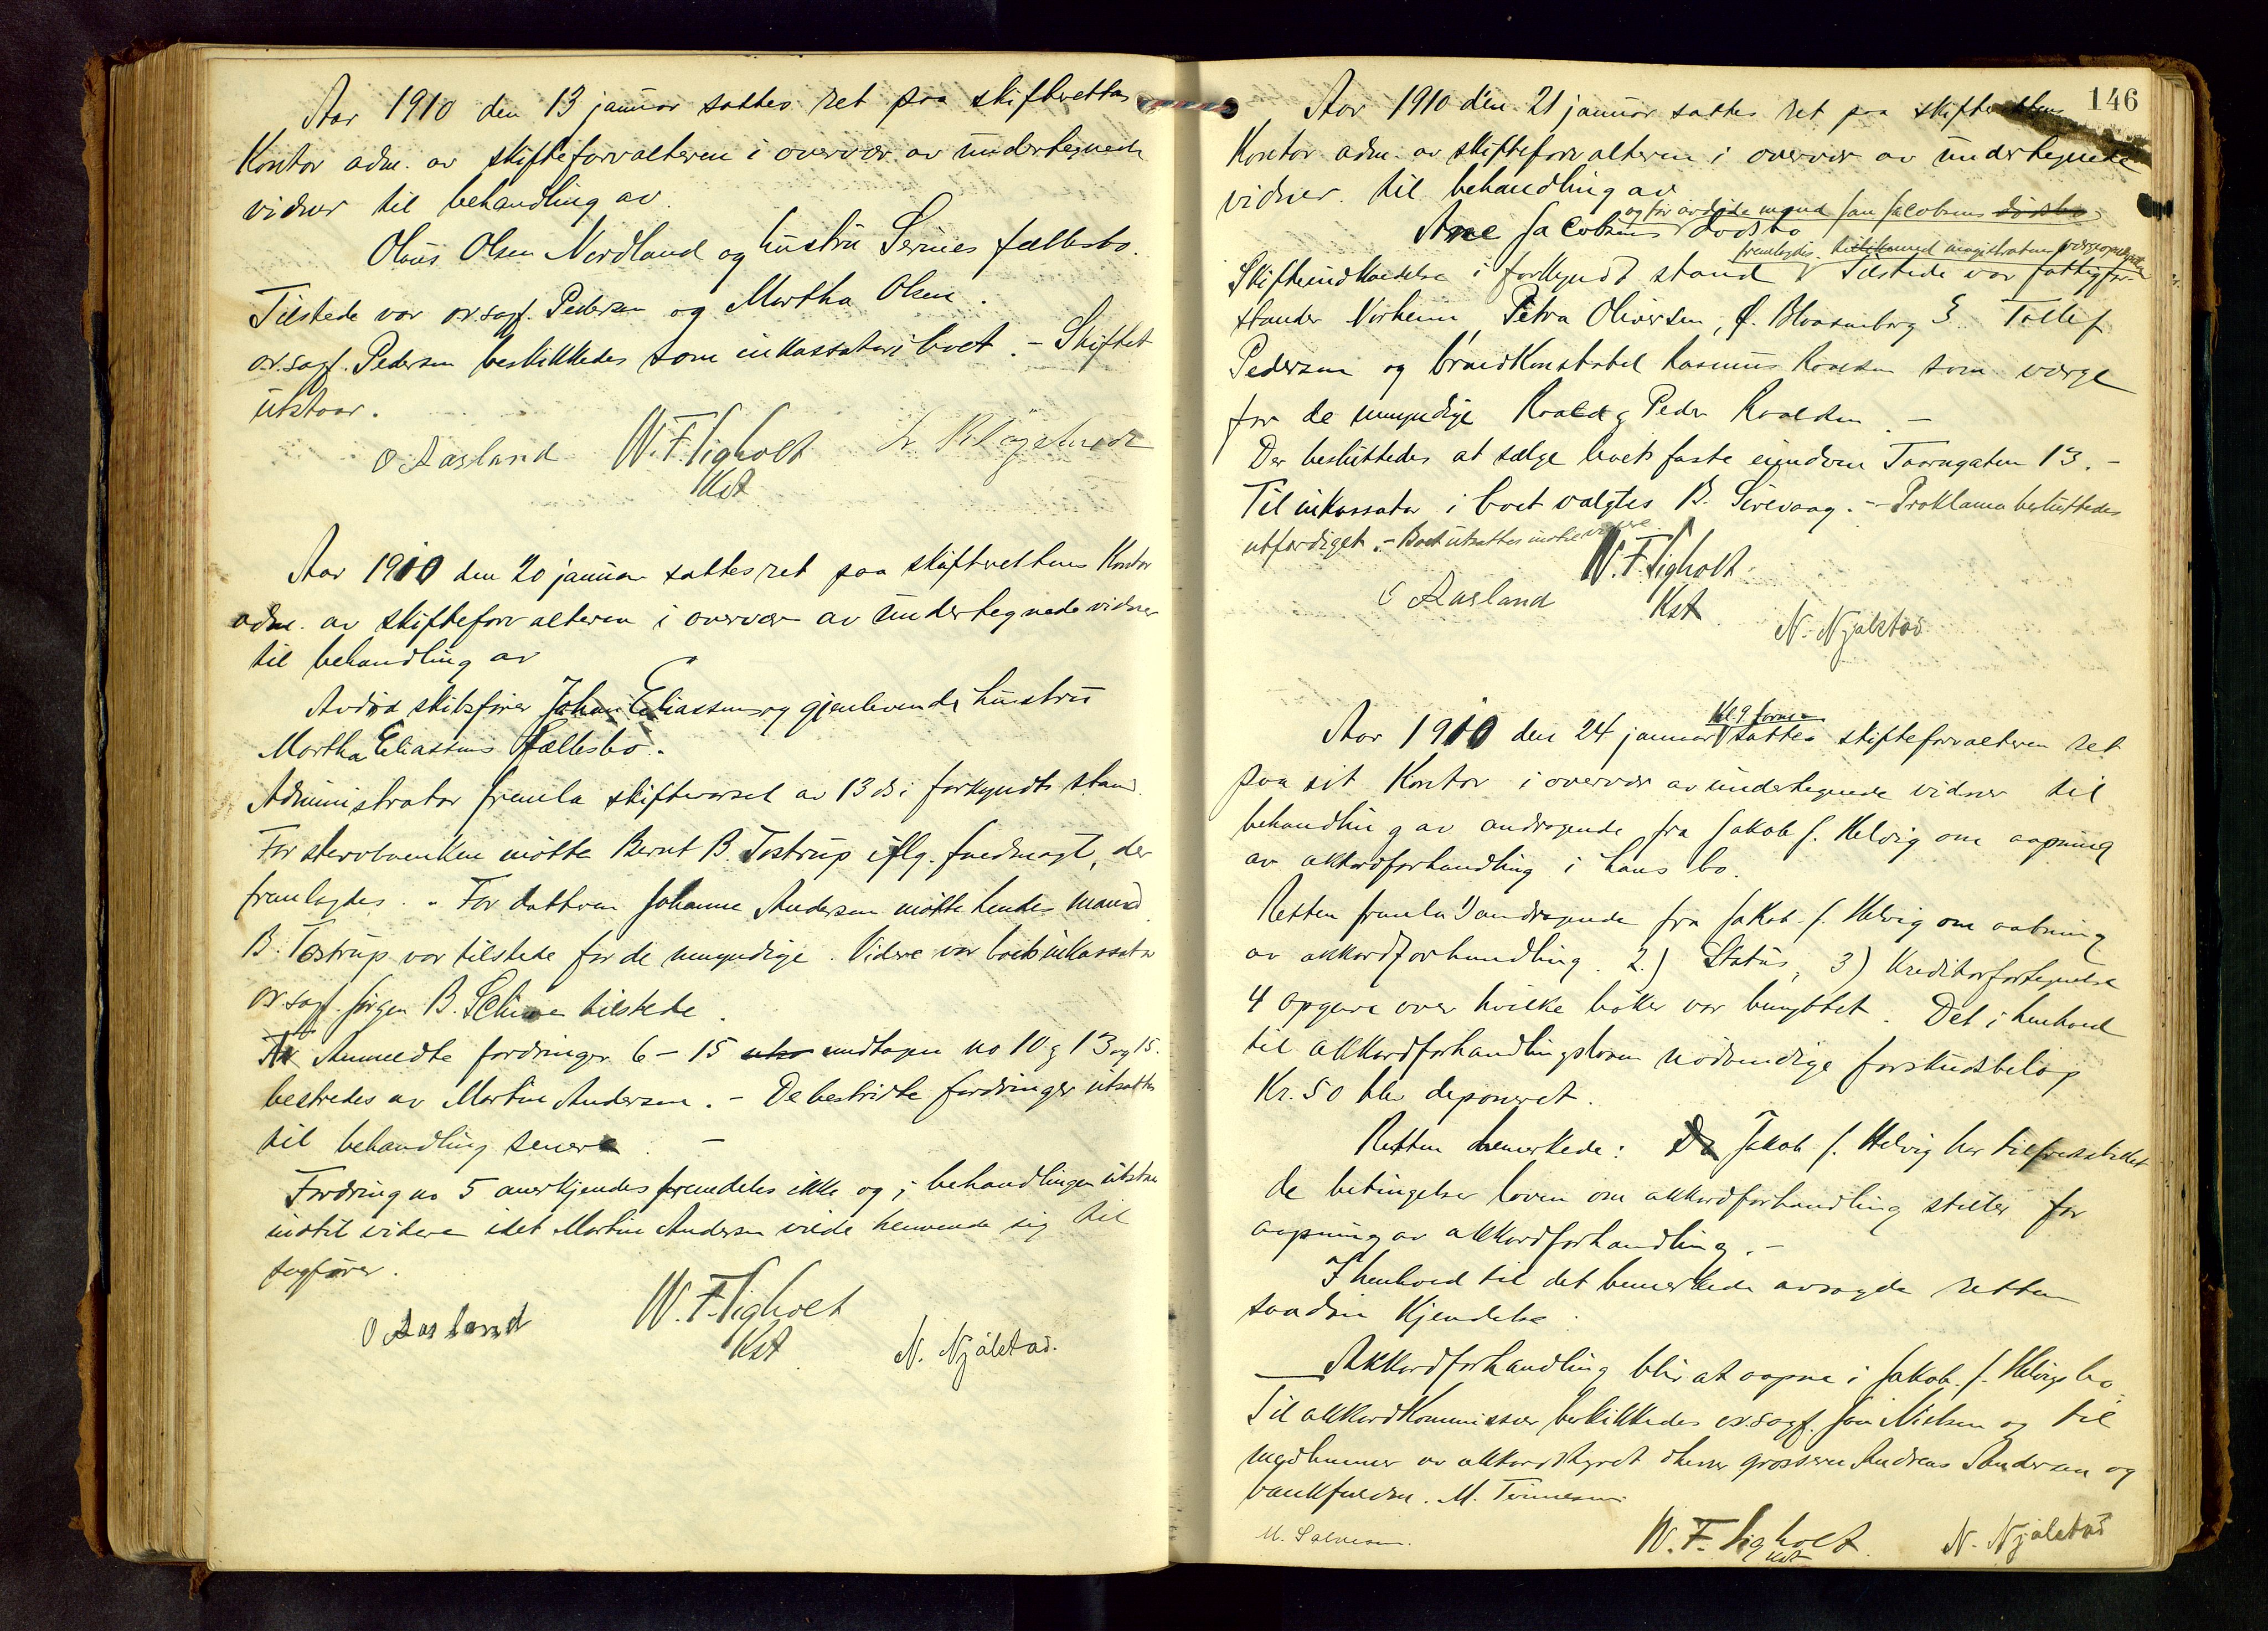 Aar 1910 den 13 januar sattes ret paa skifterettens
Kontor adm. av skifteforvalteren i overvær av undertegnede
vidner til behandling av
Olaus Olsen Nordland og hustru Serines fællesbo.
Tilstede var o.r.sagf. Pedersen og Martha Olsen.
o.r.sagf. Pedersen beskikkedes som inkassator i boet. - Skiftet
utstaar.
O Aasland W. F. Sigholt
Kst
Aar 1910 den 20 januar sattes ret paa skifterettens Kontor
adm. av skifteforvalteren i overvær av undertegnede vidner
til behandling av
Avdød skibsfører Johan Eliassens og gjenlevende hustru
Martha Eliassens Fællesbo.
Administrator fremla skiftevarsel av 13 ds i forkyndt stand.
For stervboenken møtte Bernt B. Tostrup iflg. fuldmagt, der
fremlagdes. - For datteren Johanne Andersen møtte hendes mand
B. Tostrup var tilstede for de umyndige. Videre var boets inkassator
o.r.sagf. Jørgen B. tilstede.
Anmeldte fordringer 6 - 15 undtagen no 10 og 13 og 15.
bestredes av Martin Andersen. - De bestridte fordringer utsattes
til behandling senere. -
Fordring no 5 anerkjendes fremdeles ikke og behandlingen utstaar
indtil videre idet Martin Andersen vilde henvende sig til
sagfører.
O Aasland W. F. Sigholt
Kst N. Njålstad.
146
Aar 1910 den 21 januar sattes ret paa skifterettens
Kontor adm. av skifteforvalteren i overvær av undertegnede
vidner til behandling av
og før avdøde mand Jan Jacobsens dødsbo
Ane Jacobsens dødsbo
fremlagdes magistratens værgeopnævnelse
Skifteindkaldelse i forkyndt stand Tilstede var fattigfor-
stander Norheim, Petra Oliversen, Tollef
Pedersen og brandkonstabel Rasmus Roalsen som værge
for de umyndige Roald og Peder Roaldsen. -
Der besluttedes at sælge boets faste eiendom Taarngaten 13. -
Til inkassator i boet valgtes B. Sirevaag. - Proklama besluttedes
utfærdiget. - Boet utsattes indtil videre.
W. F. Sigholt
O Aasland Kst N. Njålstad
Kl. 9 form
Aar 1910 den 24 januar sattes skifteforvalteren ret
paa sit Kontor i overvær av undertegnede vidner til
behandling av andragende fra Jakob J. Helvig om aapning
av akkordforhandling i hans bo.
Retten fremla 1) andragende fra Jakob J. Helvig om aabning
av akkordforhandling. 2.) Status, 3) Kreditorfortegnelse
4 opgave over hvilke bøker var benyttet. Det i henhold
til akkordforhandlingsloven nødvendige forskudsbeløp
Kr. 50 blev deponeret.
Retten bemerkede: Da Jakob J. Helvig har tilfredsstillet
de betingelser loven om akkordforhandling stiller for
aapning av akkordforhandling. -
I henhold til det bemerkede avsagde retten
saadan Kjendelse.
Akkordforhandling blir at aapne i Jakob J. Helvigs bo
Til akkordkommissær beskikkedes o.r.sagf. Jon Nielsen og til
medlemmer av akkordstyret d'herrer grosserer Andreas Andersen og
bankfuldm. M. Tønnesen.
M. Salvesen. W. F. Sigholt N. Njålstad
Kst